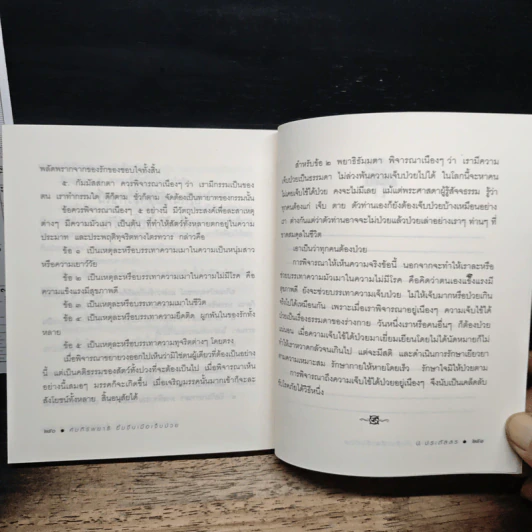 พลัดพรากจากของรักของชอบใจทั้งสิ้น
๕. กัมมัสสกตา ควรพิจารณาเนืองๆ ว่า เรามีกรรมเป็นของ
ตน เราทำกรรมใด ดีก็ตาม ชั่วก็ตาม จักต้องเป็นทายาทของกรรมนั้น
ข้อควรพิจารณาเนืองๆ ๕ อย่างนี้ มีวัตถุประสงค์เพื่อละสาเหตุ
ต่างๆ มีความมัวเมา เป็นต้น ที่ทำให้สัตว์ทั้งหลายตกอยู่ในความ
ประมาท และประพฤติทุจริตทางไตรทวาร กล่าวคือ
ข้อ ๑ เป็นเหตุละหรือบรรเทาความเมาในความเป็นหนุ่มสาว
หรือความเยาว์วัย
ข้อ ๒ เป็นเหตุละหรือบรรเทาความเมาในความไม่มีโรค คือ
ความแข็งแรงมีสุขภาพดี
ข้อ ๓ เป็นเหตุละหรือบรรเทาความเมาในชีวิต
ข้อ ๔ เป็นเหตุละหรือบรรเทาความยึดติด ผูกพันในของรักทั้ง
หลาย
ข้อ ๕ เป็นเหตุละหรือบรรเทาความทุจริตต่างๆ โดยตรง
เมื่อพิจารณาขยายวงออกไปเห็นว่ามิใช่ตนผู้เดียวที่ต้องเป็นอย่าง
นี้ แต่เป็นคติธรรมของสัตว์ทั้งปวงที่จะต้องเป็นไป เมื่อพิจารณาเห็น
อย่างนี้เสมอๆ มรรคก็จะเกิดขึ้น เมื่อเจริญมรรคนั้นมากเข้าก็จะละ
สังโยชน์ทั้งหลาย สิ้นอนุสัยได้
สำหรับข้อ ๒ พยาธิธัมมตา พิจารณาเนืองๆ ว่า เรามีความ
เจ็บป่วยเป็นธรรมดา ไม่ล่วงพ้นความเจ็บป่วยไปได้ ในโลกนี้จะหาคน
ไม่เคยเจ็บไข้ได้ป่วย คงจะไม่มีเลย แม้แต่พระศาสดาผู้รู้สัจธรรม รู้ว่า
ทุกคนต้องแก่ เจ็บ ตาย ตัวท่านเองก็ยังต้องเจ็บป่วยบ้างเหมือนอย่าง
เรา ต่างกันแต่ว่าตัวท่านอาจจะไม่ป่วยแล้วป่วยเล่าอย่างเราๆ ท่านๆ ที่
ขาดสมดุลในชีวิต
เอาเป็นว่าทุกคนต้องป่วย
การพิจารณาให้เห็นความจริงข้อนี้ นอกจากจะทำให้เราละหรือ
ช่วยบรรเทาความมัวเมาในความไม่มีโรค คือคิดว่าตนเองแข็งแรงมี
สุขภาพดี ยังจะช่วยบรรเทาความเจ็บป่วย ไม่ให้เจ็บมากหรือป่วยเกิน
ไปได้เหมือนกัน เพราะเมื่อเราพิจารณาอยู่เนืองๆ ความเจ็บไข้ได้
ป่วยเป็นเรื่องธรรมดาของร่างกาย วันหนึ่งเราหรือคนอื่นๆ ก็ต้องป่วย
แน่นอน เมื่อความเจ็บไข้ได้ป่วยมาเยี่ยมเยียนโดยไม่ได้นัดหมายก็ไม่
ทำให้เราหวาดกลัวจนเกินไป แต่จะมีสติ และดำเนินการรักษาเยียวยา
ตามความเหมาะสม รักษากายให้หายโดยเร็ว รักษาใจมิให้ป่วยตาม
การพิจารณาถึงความเจ็บไข้ได้ป่วยอยู่เนืองๆ จึงนับเป็นเคล็ดลับ